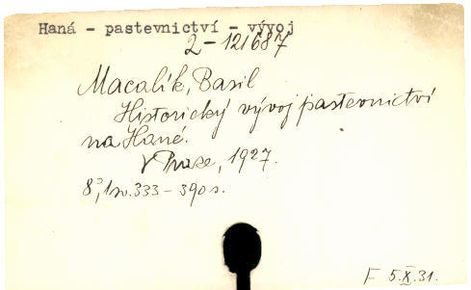 Haná - pastevnictví - vývoj
2-121687
Macalík, Basil
Historický vývoj pastevnictví
na Hané.
V Praze, 1927.
8°, 1 sv. 333-390 s.
F 5.X.31.